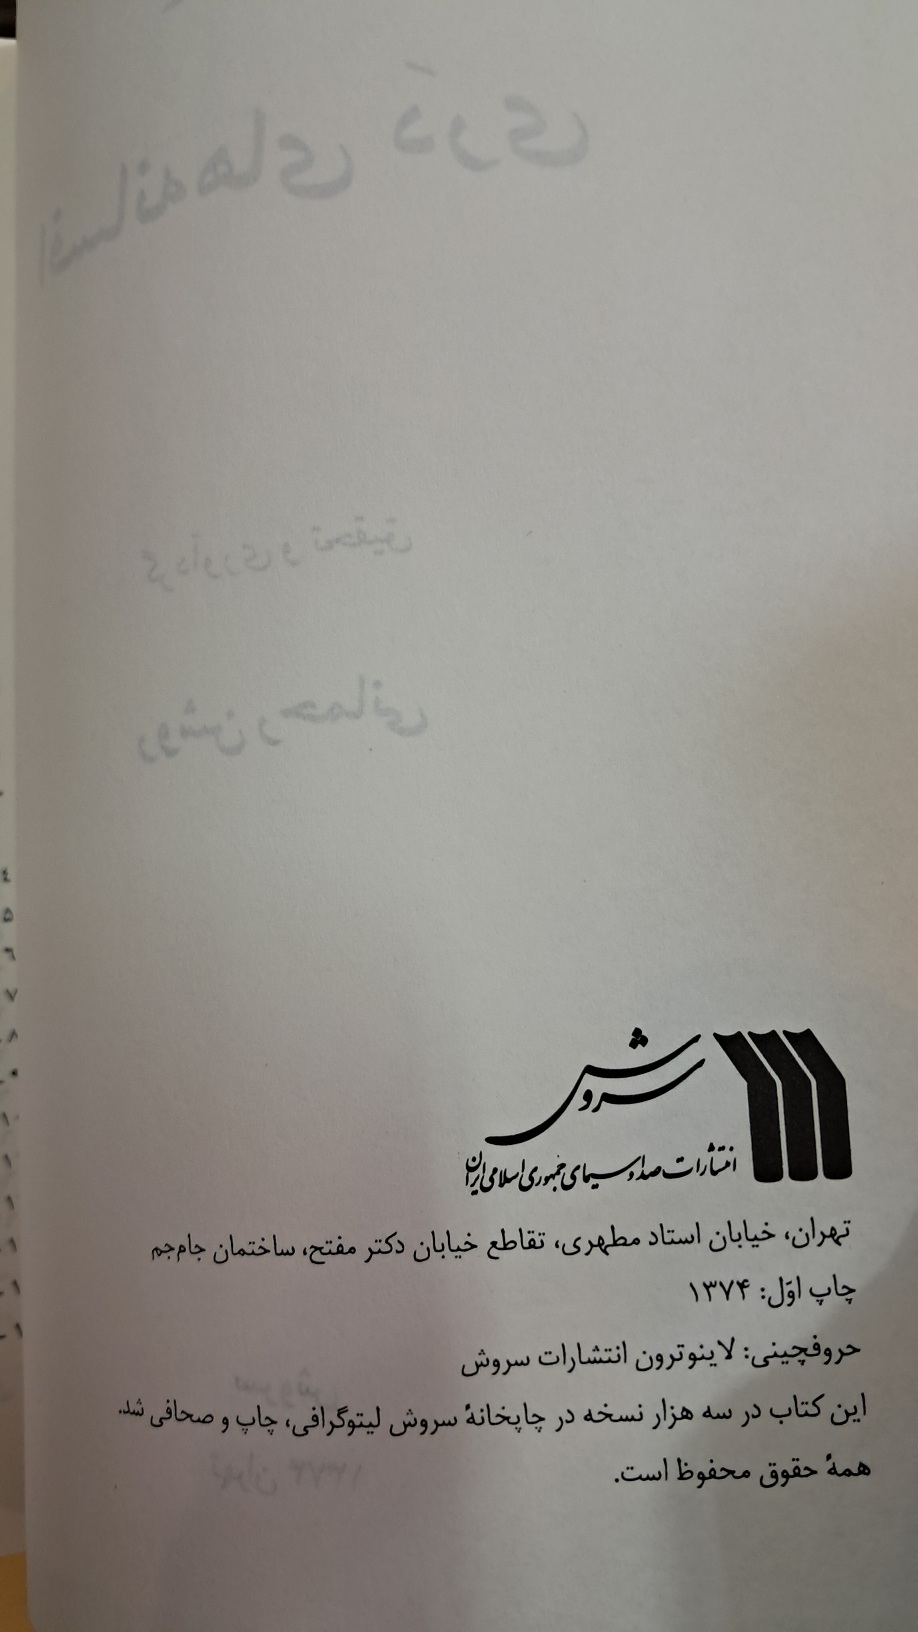 افسانه‌های دَری
گردآوری و تحقیق
روشن رحمانی
سروش
انتشارات صدا و سیمای جمهوری اسلامی ایران
تهران، خیابان استاد مطهری، تقاطع خیابان دکتر مفتح، ساختمان جام‌جم
چاپ اوّل: ۱۳۷۴
حروفچینی: لاینوترون انتشارات سروش
این کتاب در سه هزار نسخه در چاپخانهٔ سروش لیتوگرافی، چاپ و صحافی شد.
همهٔ حقوق محفوظ است.
سروش
تهران ۱۳۷۴